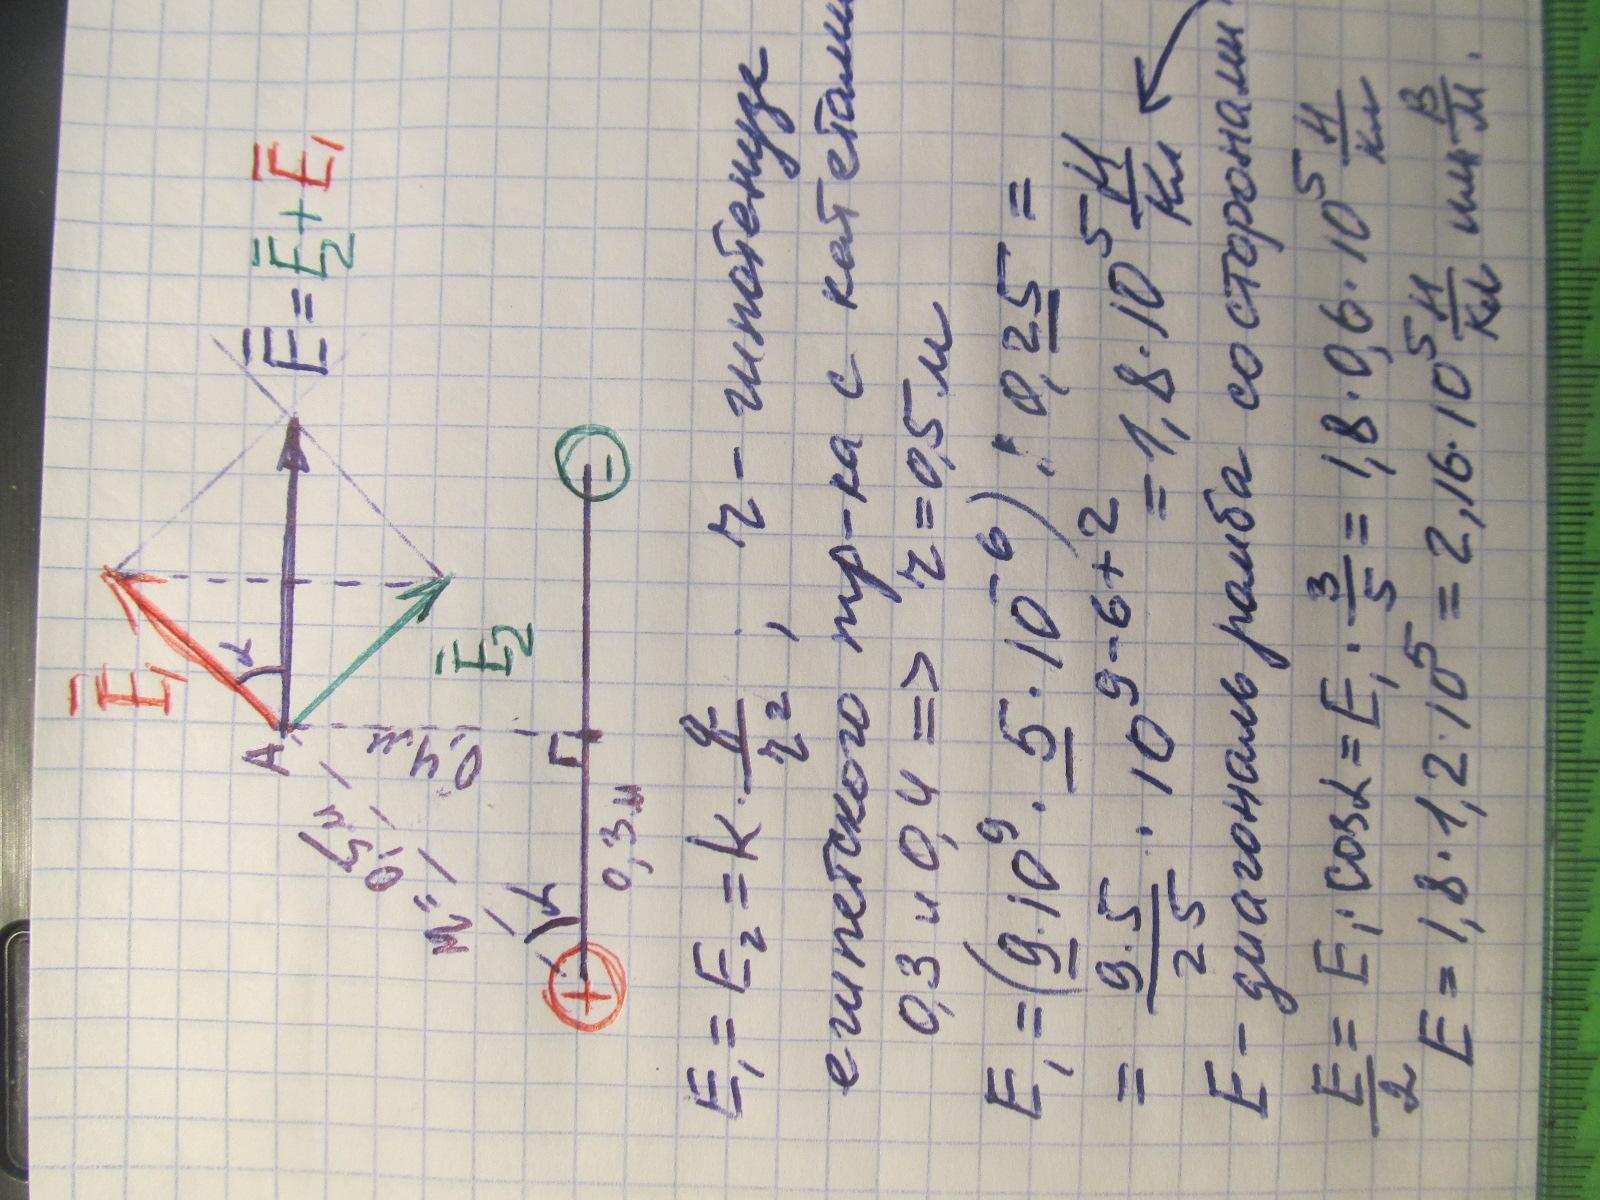 Ē₁
Ē = Ē₂ + Ē₁
α
A
Ē₂
0,5 м
0,4 м
"М"
α
0,3 м
+
-
E₁ = E₂ = k · q/r² ; r - гипотенуза
египетского тр-ка с катетами
0,3 и 0,4 => r = 0,5 м
E₁ = (9·10⁹ · 5·10⁻⁶) : 0,25 =
= 9·5/25 · 10⁹⁻⁶⁺² = 1,8·10⁵ Н/Кл
E - диагональ ромба со сторонами
E/2 = E₁ · cosα = E₁ · 3/5 = 1,8 · 0,6 · 10⁵ Н/Кл
E = 1,8 · 1,2 · 10⁵ = 2,16 · 10⁵ Н/Кл или В/м.